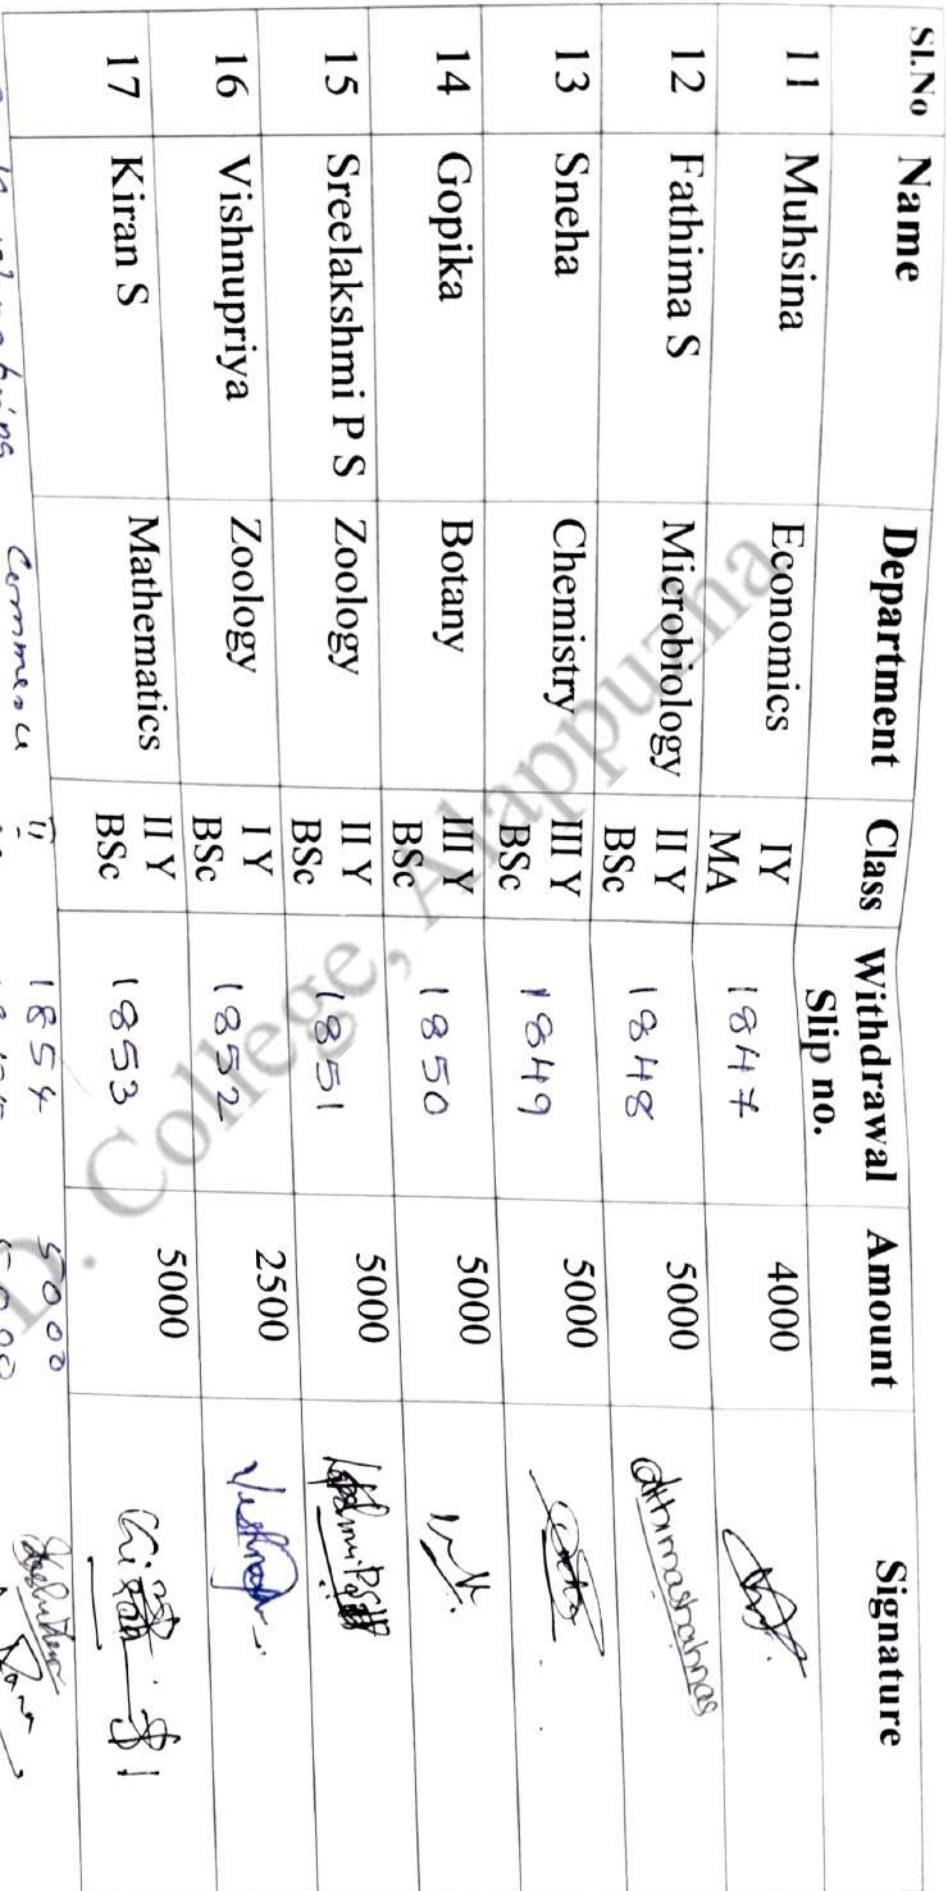 Sl.No Name Department Class Withdrawal Slip no. Amount Signature
11 Muhsina Economics IY MA 1847 4000
12 Fathima S Microbiology II Y BSc 1848 5000
13 Sneha Chemistry III Y BSc 1849 5000
14 Gopika Botany III Y BSc 1850 5000
15 Sreelakshmi P S Zoology II Y BSc 1851 5000
16 Vishnupriya Zoology I Y BSc 1852 2500
17 Kiran S Mathematics II Y BSc 1853 5000 Kiran S
Commerce 1854 5000
D. College, Alappuzha